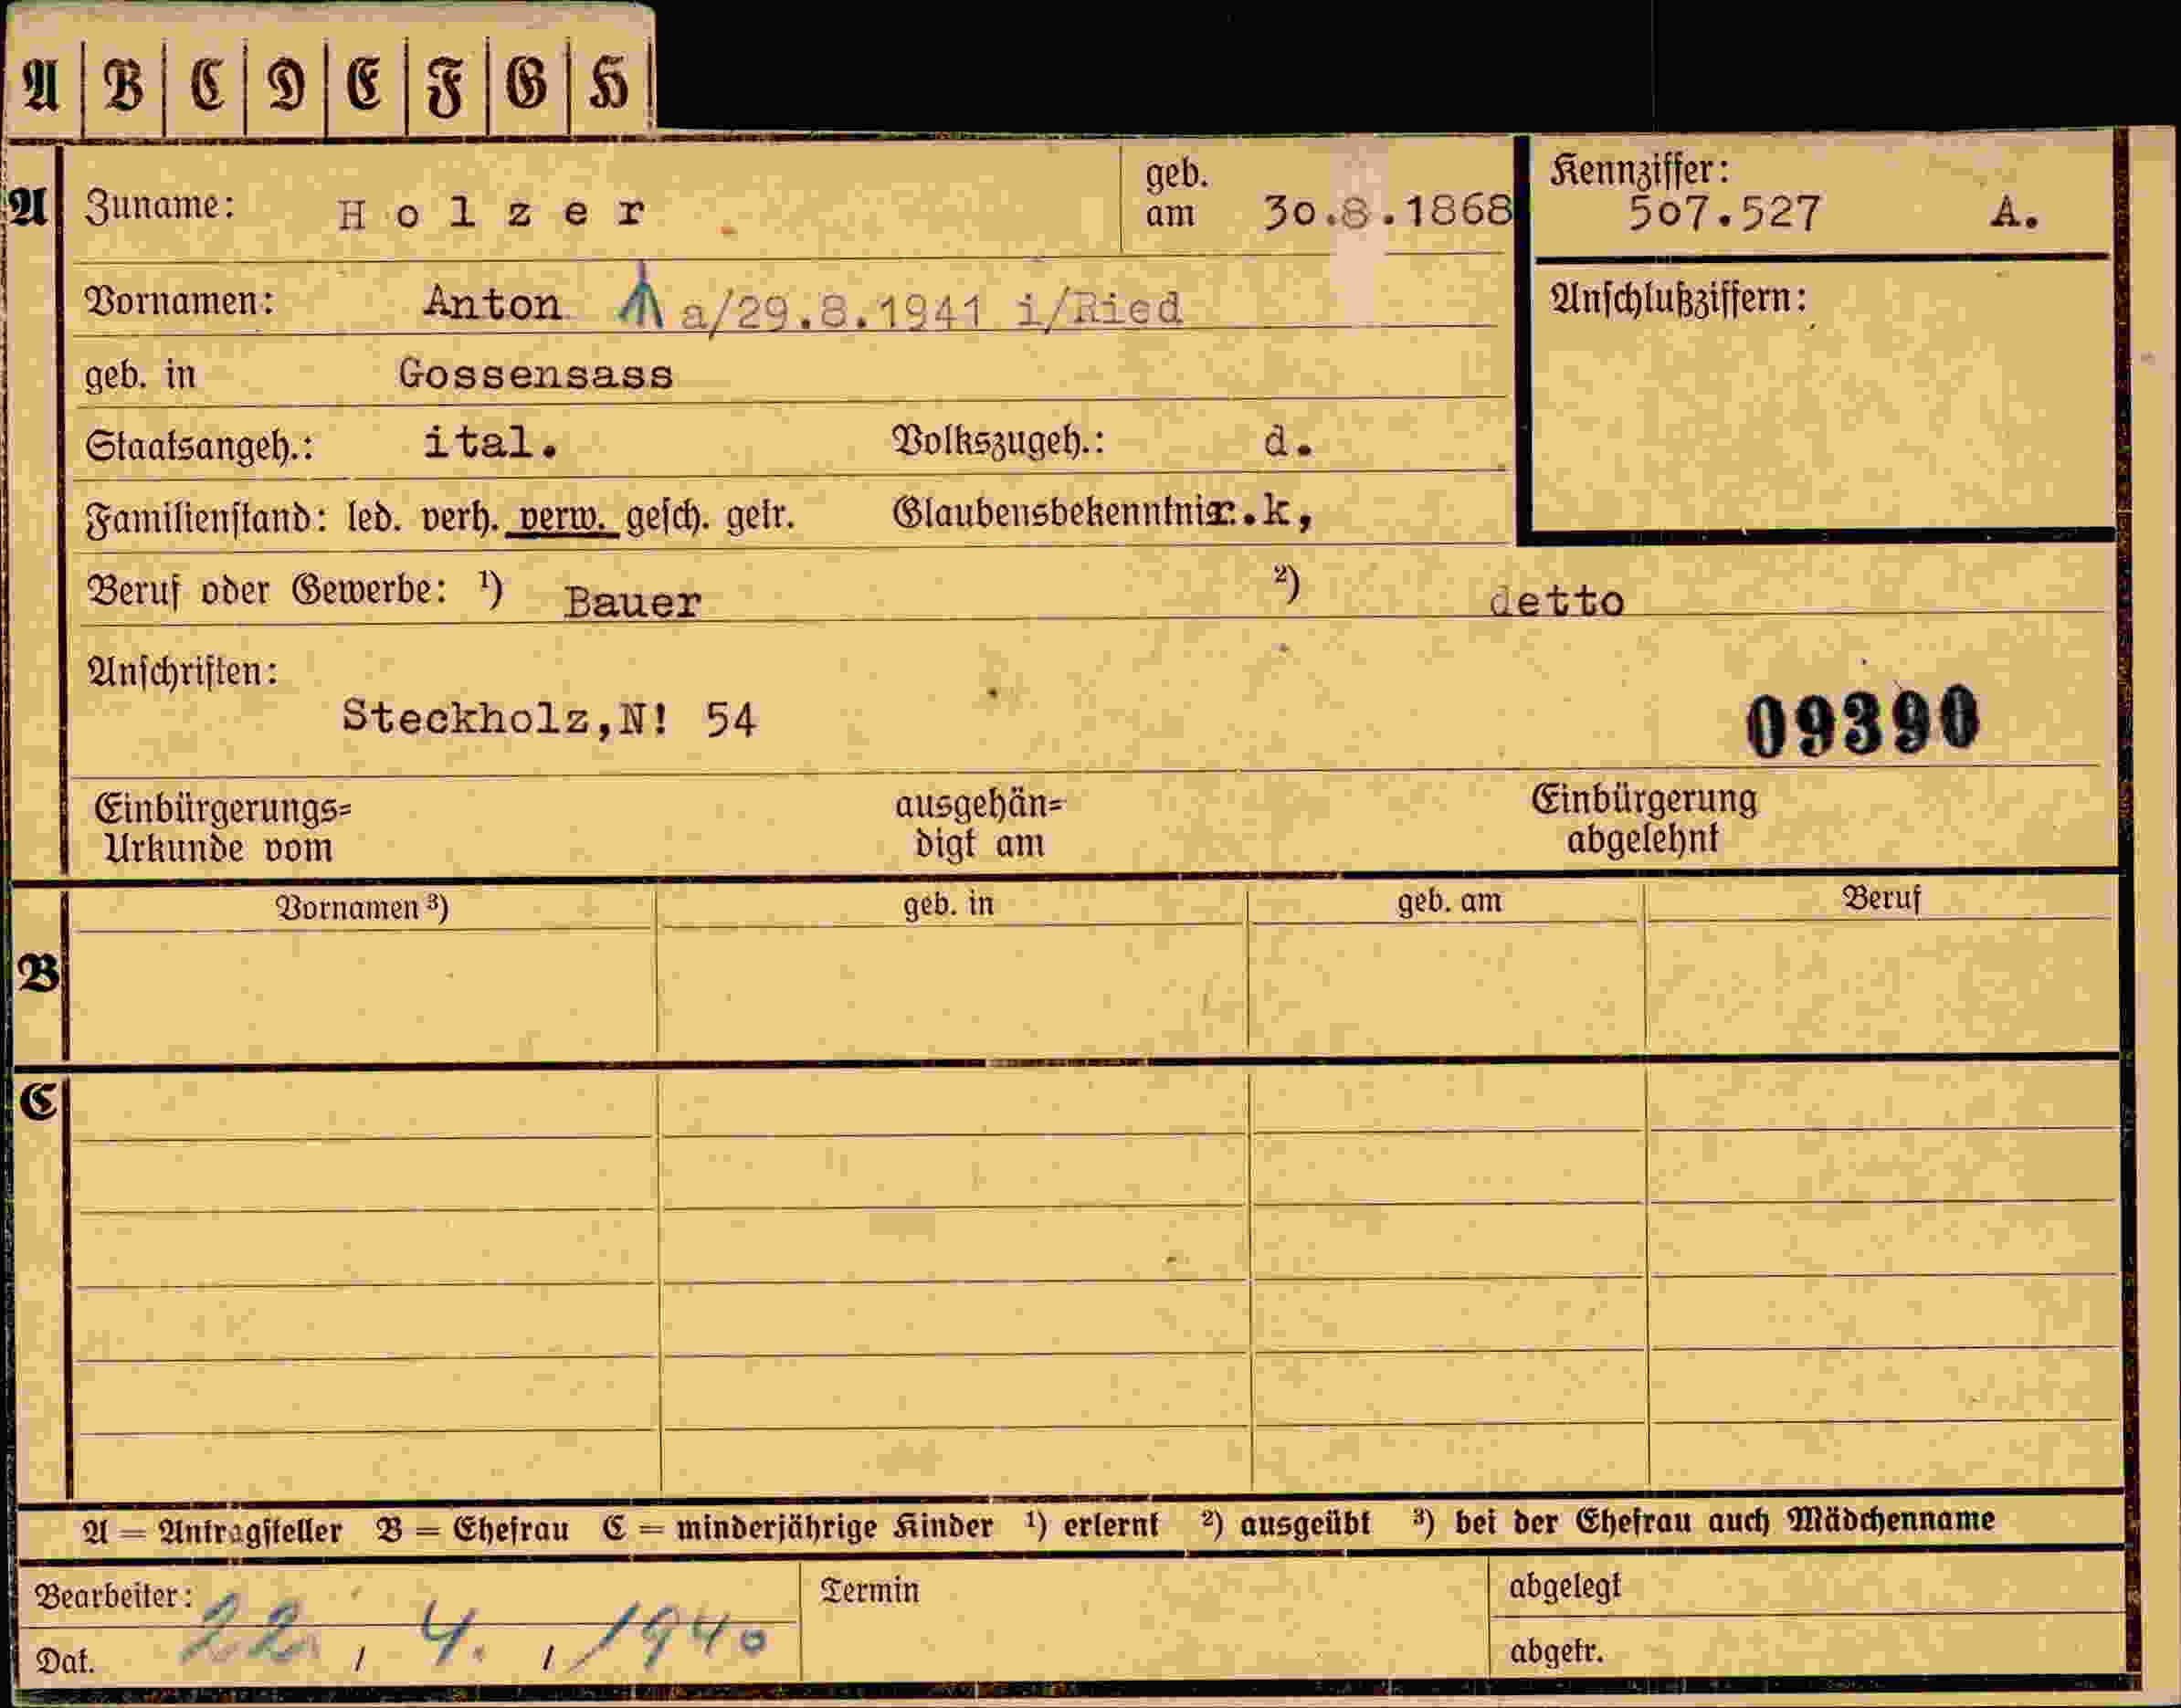 A B C D E F G H
A Zuname: Holzer geb. am 30.8.1868 Kennziffer: 507.527 A.
Vornamen: Anton a/29.8.1941 i/Ried Anschlußziffern:
geb. in Gossensass
Staatsangeh.: ital. Volkszugeh.: d.
Familienstand: led. verh. verw. gesch. getr. Glaubensbekenntnis: r.k,
Beruf oder Gewerbe: ¹) Bauer ²) detto
Anschriften:
Steckholz,N! 54 09390
Einbürgerungs= ausgehän= Einbürgerung
Urkunde vom digt am abgelehnt
Vornamen ³) geb. in geb. am Beruf
B
C
A = Antragsteller B = Ehefrau C = minderjährige Kinder ¹) erlernt ²) ausgeübt ³) bei der Ehefrau auch Mädchenname
Bearbeiter: Termin abgelegt
Dat. 22. / 4. / 1940 abgetr.